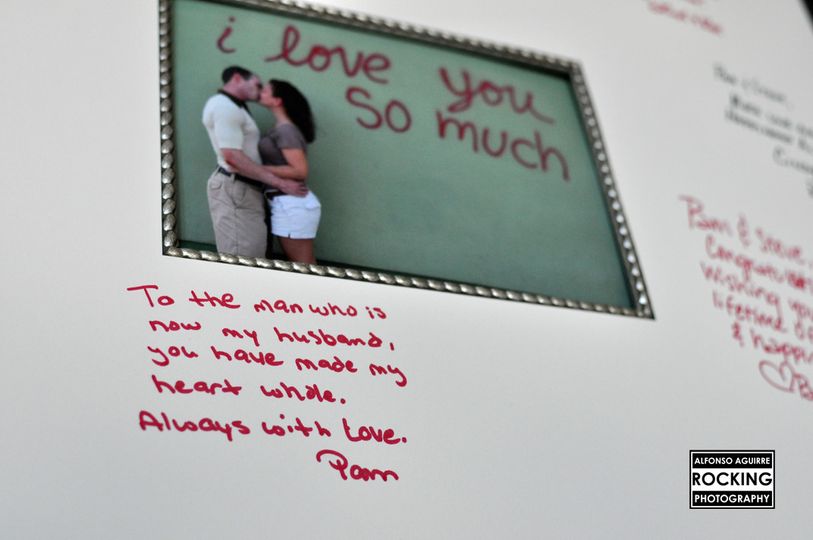 i love you
so much
To the man who is
now my husband,
you have made my
heart whole.
Always with Love.
Pam
Pam & Steve,
Congratulations
Wishing you
lifetime of
& happin
ALFONSO AGUIRRE
ROCKING
PHOTOGRAPHY